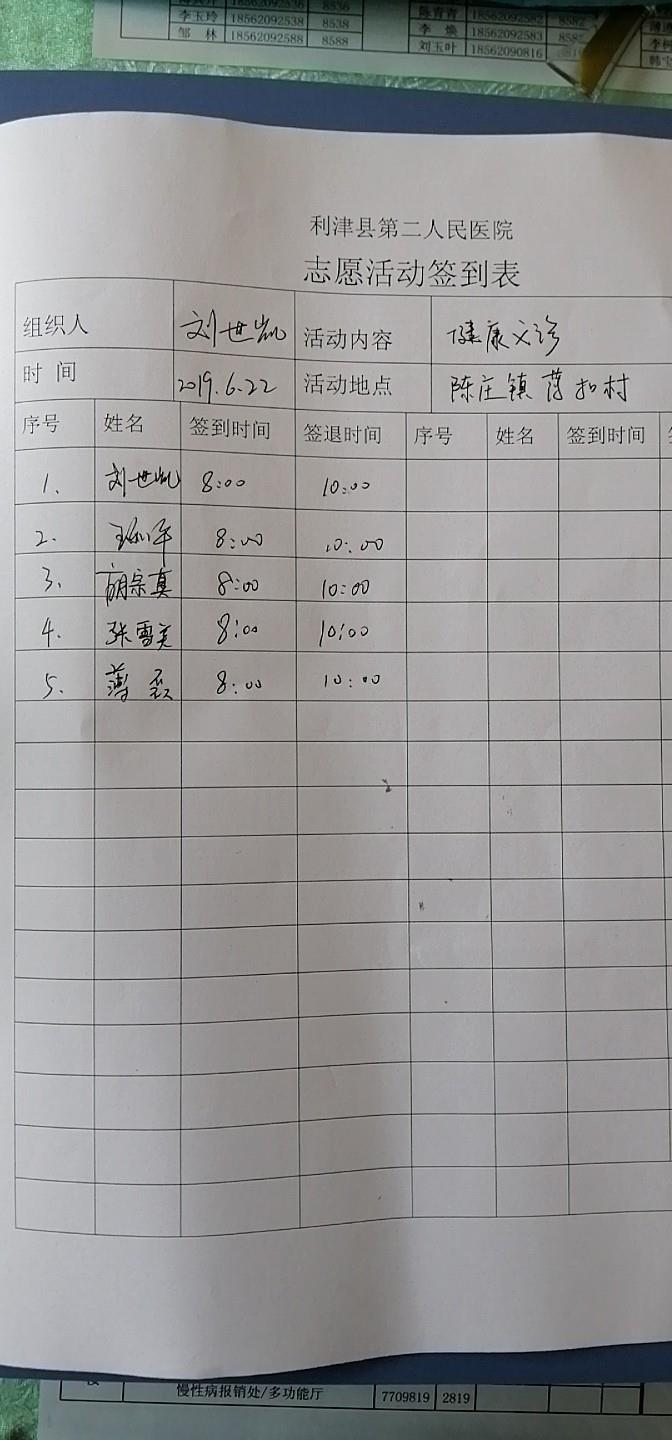 18562092536 8536
李玉玲 18562092538 8538
邹 林 18562092588 8588
陈青青 18562092582 8582
李 焕 18562092583
刘玉叶 18562090816
利津县第二人民医院
志愿活动签到表
组织人 刘世凯 活动内容 健康义诊
时 间 2019.6.22 活动地点 陈庄镇 薄扣村
序号 姓名 签到时间 签退时间 序号 姓名 签到时间
1、 刘世凯 8:00 10:00
2. 8:00 10:00
3、 胡宗真 8:00 10:00
4. 张雪英 8:00 10:00
5、 薄 磊 8:00 10:00
慢性病报销处/多功能厅 7709819 2819